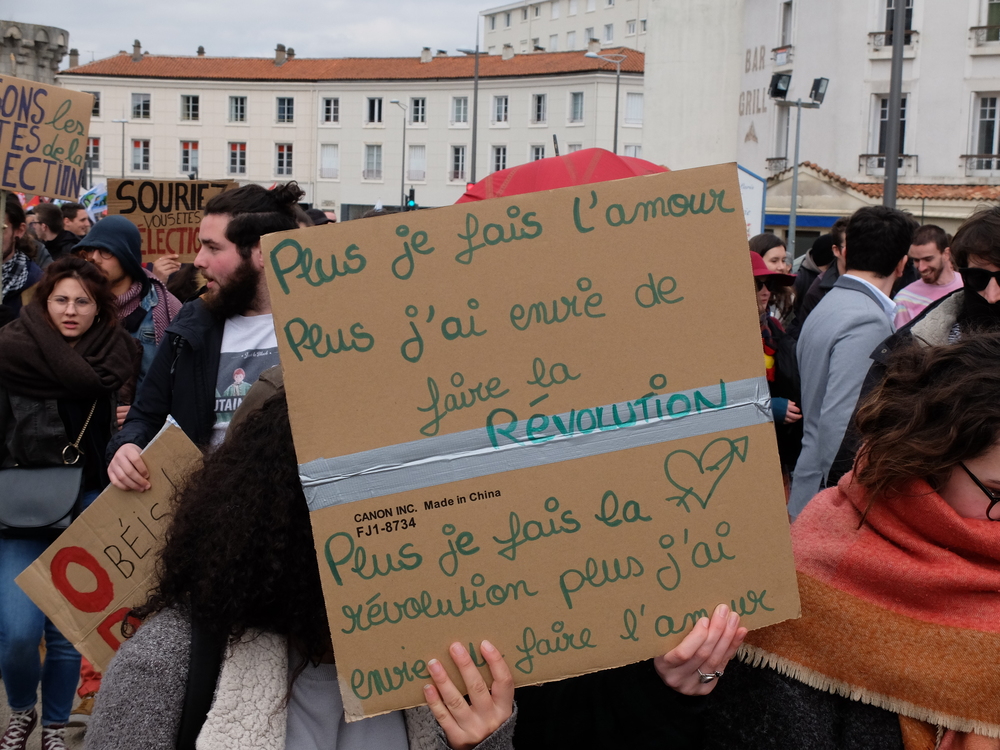 BAR
GRILL
ONS les
TES de la
ECTION
SOURIEZ
VOUS ETES
ÉLECTION
Plus je fais l'amour
Plus j'ai envie de
faire la
RÉVOLUTION
CANON INC. Made in China
FJ1-8734
Plus je fais la
révolution plus j'ai
envie faire l'amour
UTAIN
O BÉIS